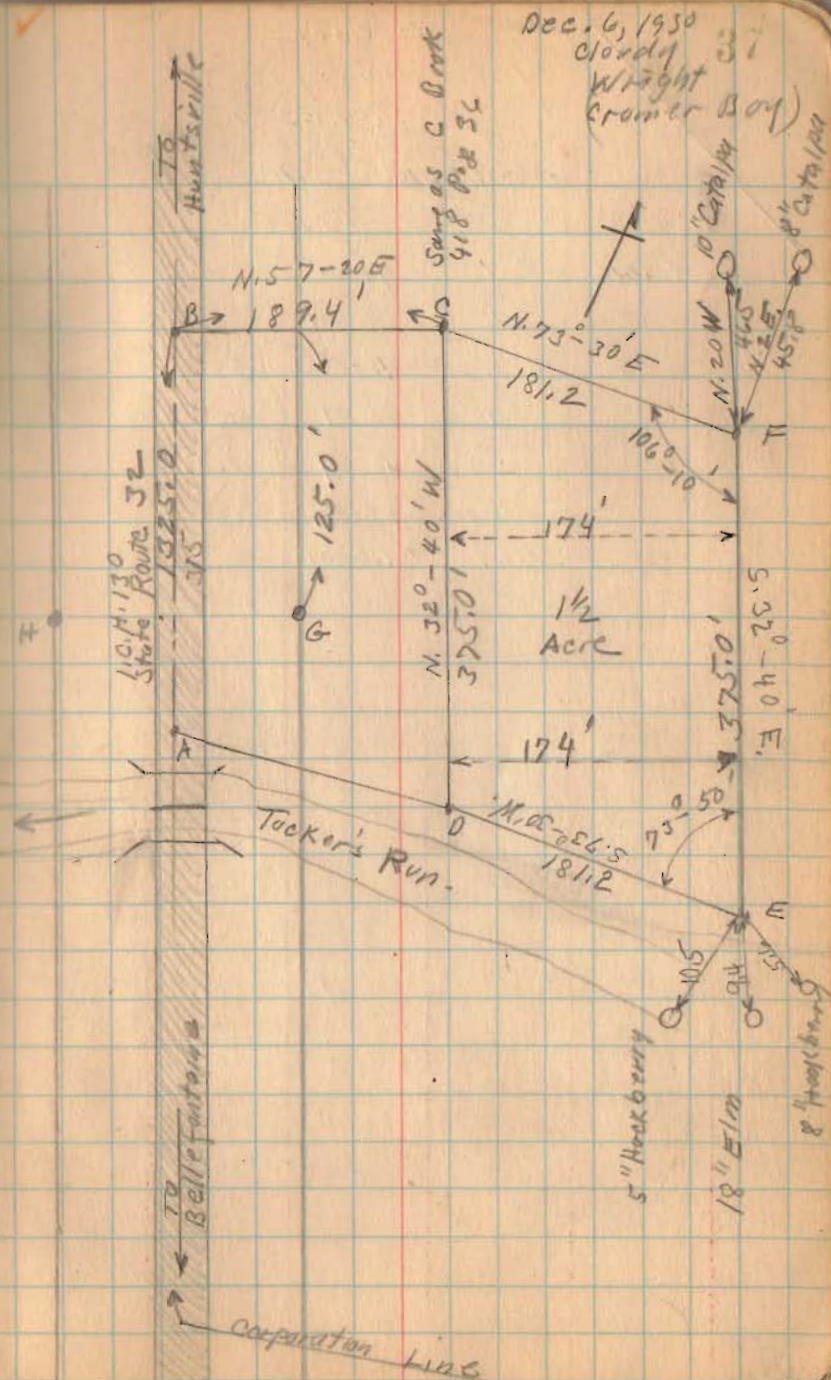 Dec. 6, 1930
Cloudy 31
Wright
(Cramer Boy)
To
Huntsville
Same as C Book
418 Pag 36
10" Catalpa
8" Catalpa
N.57-20E
189.4'
B
C
N.73°-30'E
181.2
N.20W
46.5
N.2E.
45.8
F
106°-10'
I.C.H. 130
State Route 32
1325.0
315
125.0'
G
N. 32°-40'W
375.0'
174'
1 1/2
Acre
174'
375.0'
S.32°-40'E.
A
D
Tucker's Run.
S.73°-30'W.
181.2
73°-50'
E
10.5
9.4
5.6
5" Hackberry
18" Elm
8" Hackberry
To
Bellefontaine
Corporation Line